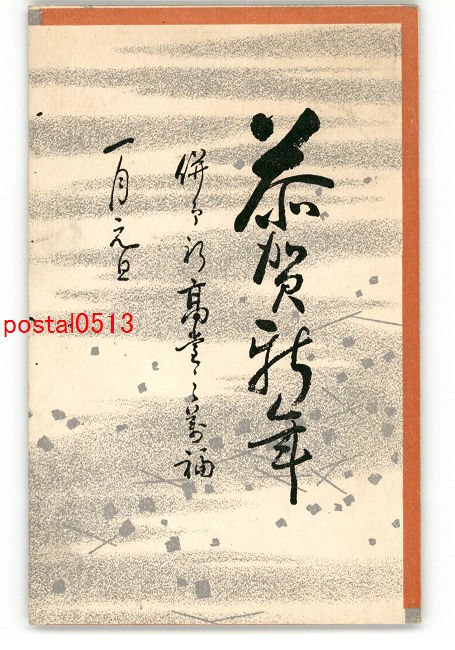 恭賀新年
併而祈高堂之萬福
一月元旦
postal0513